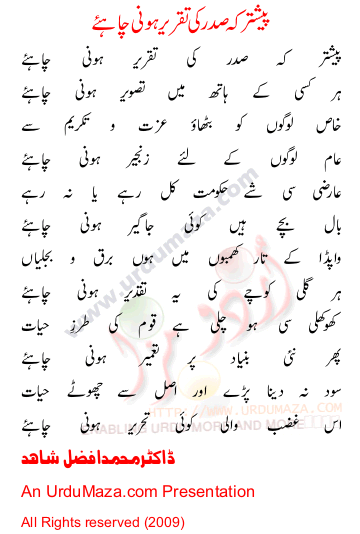 پیشتر کہ صدر کی تقریر ہونی چاہئے
پیشتر کہ صدر کی تقریر ہونی چاہئے
ہر کسی کے ہاتھ میں تصویر ہونی چاہئے
خاص لوگوں کو بٹھاؤ عزت و تکریم سے
عام لوگوں کے لئے زنجیر ہونی چاہئے
عارضی سی شے حکومت کل رہے یا نہ رہے
بال بچے ہیں کوئی جاگیر ہونی چاہئے
واپڈا کے تار کھمبوں میں ہوں برق و بجلیاں
ہر گلی کوچے کی یہ تقدیر ہونی چاہئے
کھوکھلی سی ہو چلی ہے قوم کی طرز حیات
پھر نئی بنیاد پر تعمیر ہونی چاہئے
سود نہ دینا پڑے اور اصل سے چھوٹے حیات
اس غضب والی کوئی تحریر ہونی چاہئے
ڈاکٹرمحمدافضل شاھد
An UrduMaza.com Presentation
All Rights reserved (2009)
www.urdumaza.com
اردو مزا
HTTP://WWW.URDUMAZA.COM
ENABLING URDU MORE AND MORE